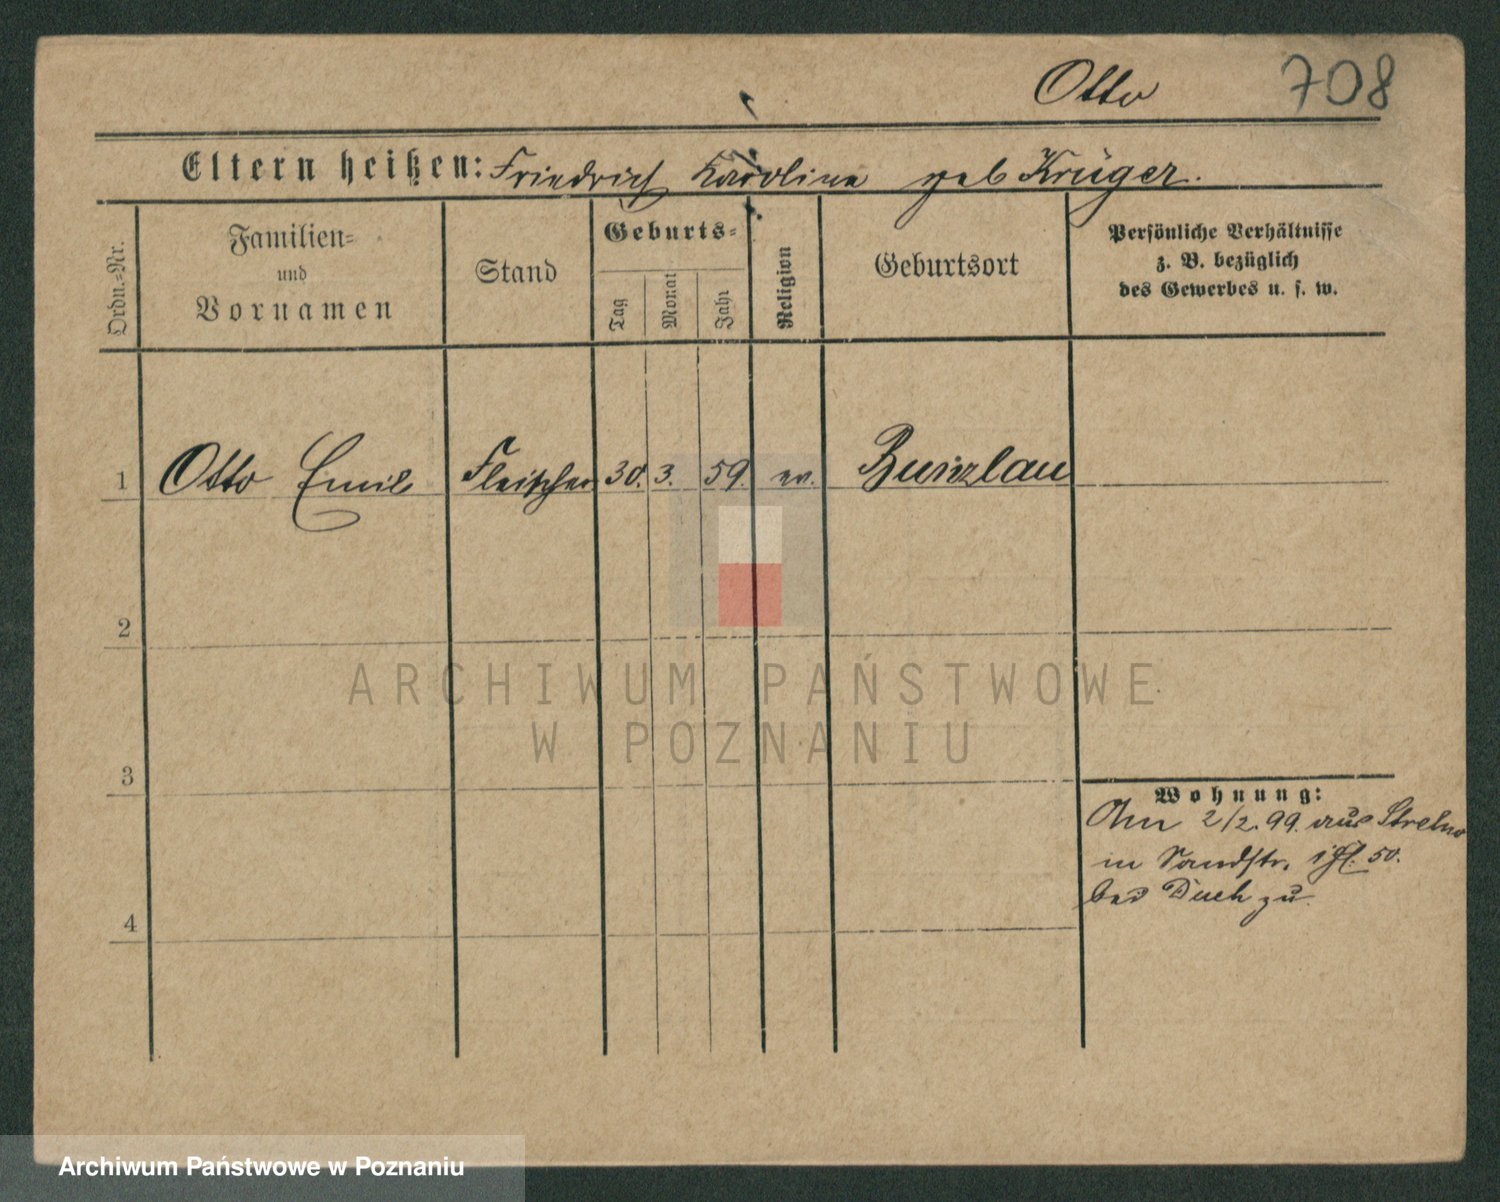 Otto 708
Eltern heißen: Friedrich Karoline geb Krüger.
Ordn.-Nr.
Familien-
und
Vornamen
Stand
Geburts-
Tag
Monat
Jahr
Religion
Geburtsort
Persönliche Verhältnisse
z. B. bezüglich
des Gewerbes u. s. w.
1 Otto Emil Fleischer 30. 3. 59. ev. Bunzlau
2
ARCHIWUM PAŃSTWOWE
W POZNANIU
3
Wohnung:
Am 2/2. 99. aus Strelno
in Sandstr. 50.
bei Duch zu
4
Archiwum Państwowe w Poznaniu